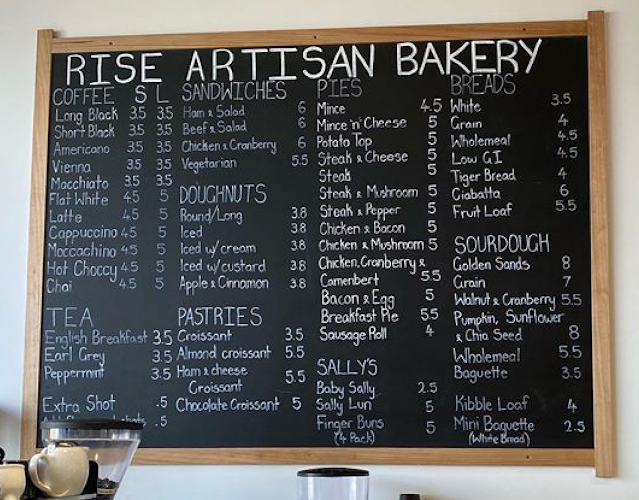 RISE ARTISAN BAKERY
COFFEE S L
Long Black 3.5 3.5
Short Black 3.5 3.5
Americano 3.5 3.5
Vienna 3.5 3.5
Macchiato 3.5 3.5
Flat White 4.5 5
Latte 4.5 5
Cappuccino 4.5 5
Moccachino 4.5 5
Hot Choccy 4.5 5
Chai 4.5 5
TEA
English Breakfast 3.5
Earl Grey 3.5
Peppermint 3.5
Extra Shot .5
.5
SANDWICHES
Ham & Salad 6
Beef & Salad 6
Chicken & Cranberry 6
Vegetarian 5.5
DOUGHNUTS
Round/Long 3.8
Iced 3.8
Iced w/cream 3.8
Iced w/custard 3.8
Apple & Cinnamon 3.8
PASTRIES
Croissant 3.5
Almond croissant 5.5
Ham & cheese
Croissant 5.5
Chocolate Croissant 5
PIES
Mince 4.5
Mince 'n' Cheese 5
Potato Top 5
Steak & Cheese 5
Steak 5
Steak & Mushroom 5
Steak & Pepper 5
Chicken & Bacon 5
Chicken & Mushroom 5
Chicken, Cranberry &
Camenbert 5.5
Bacon & Egg 5
Breakfast Pie 5.5
Sausage Roll 4
SALLY'S
Baby Sally 2.5
Sally Lun 5
Finger Buns 5
(4 Pack)
BREADS
White 3.5
Grain 4
Wholemeal 4.5
Low GI 4.5
Tiger Bread 4
Ciabatta 6
Fruit Loaf 5.5
SOURDOUGH
Golden Sands 8
Grain 7
Walnut & Cranberry 5.5
Pumpkin, Sunflower
& Chia Seed 8
Wholemeal 5.5
Baguette 3.5
Kibble Loaf 4
Mini Baguette 2.5
(White Bread)